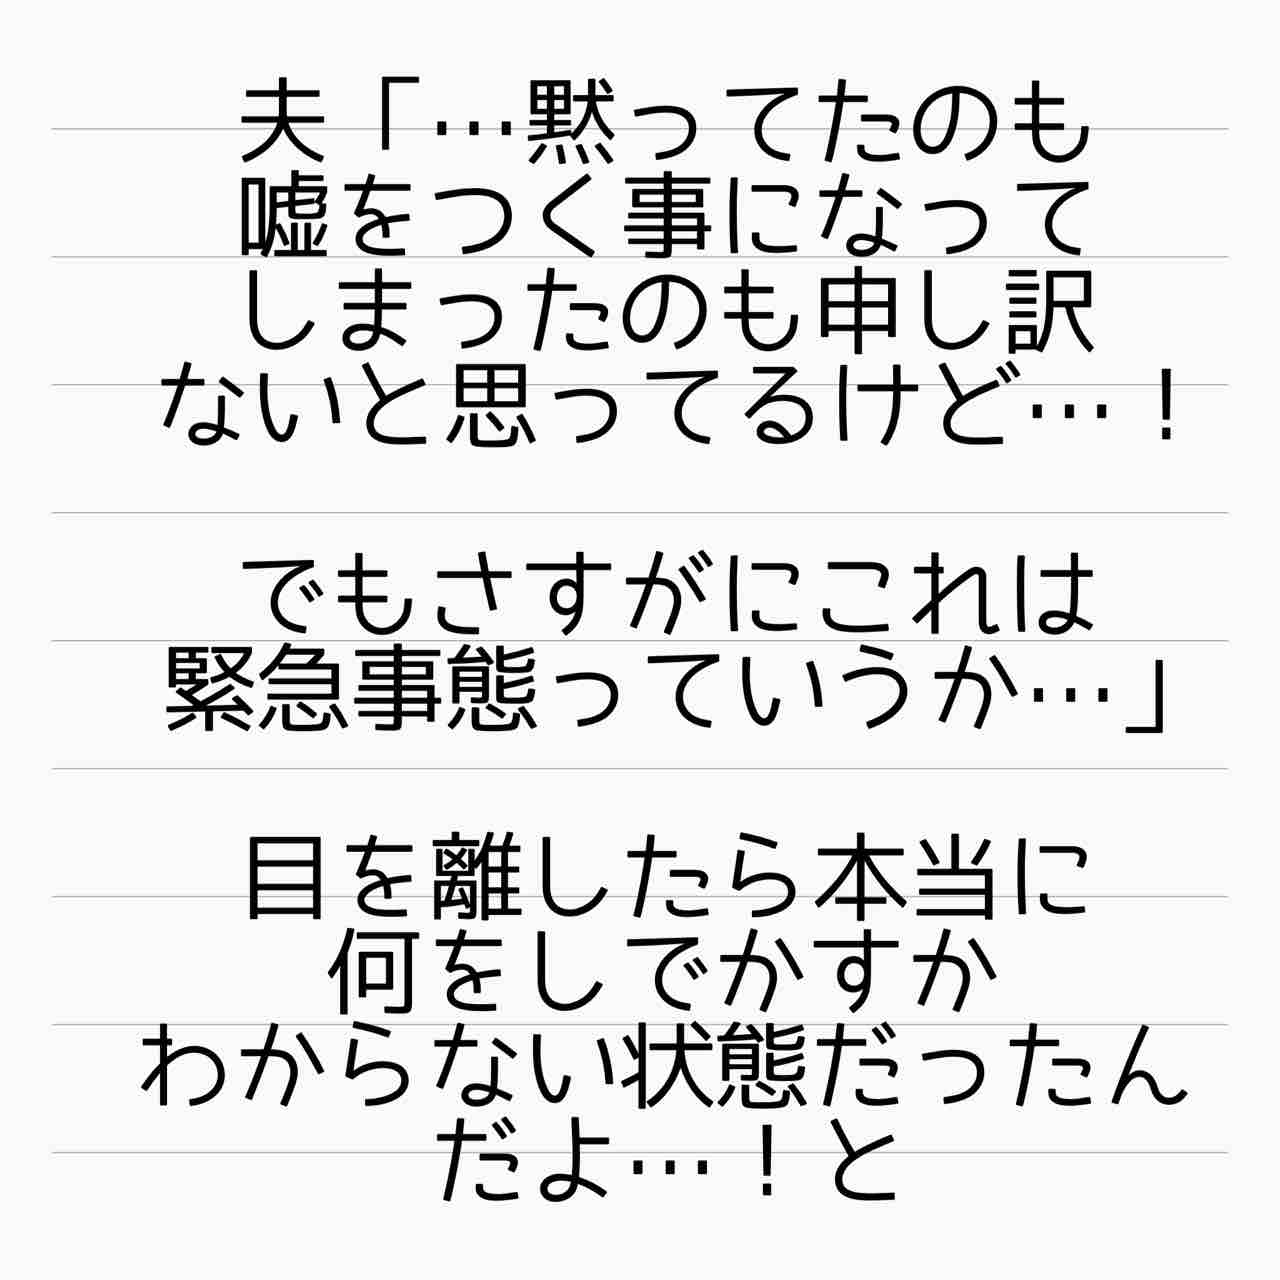 夫「…黙ってたのも
嘘をつく事になって
しまったのも申し訳
ないと思ってるけど…！
でもさすがにこれは
緊急事態っていうか…」
目を離したら本当に
何をしでかすか
わからない状態だったん
だよ…！と